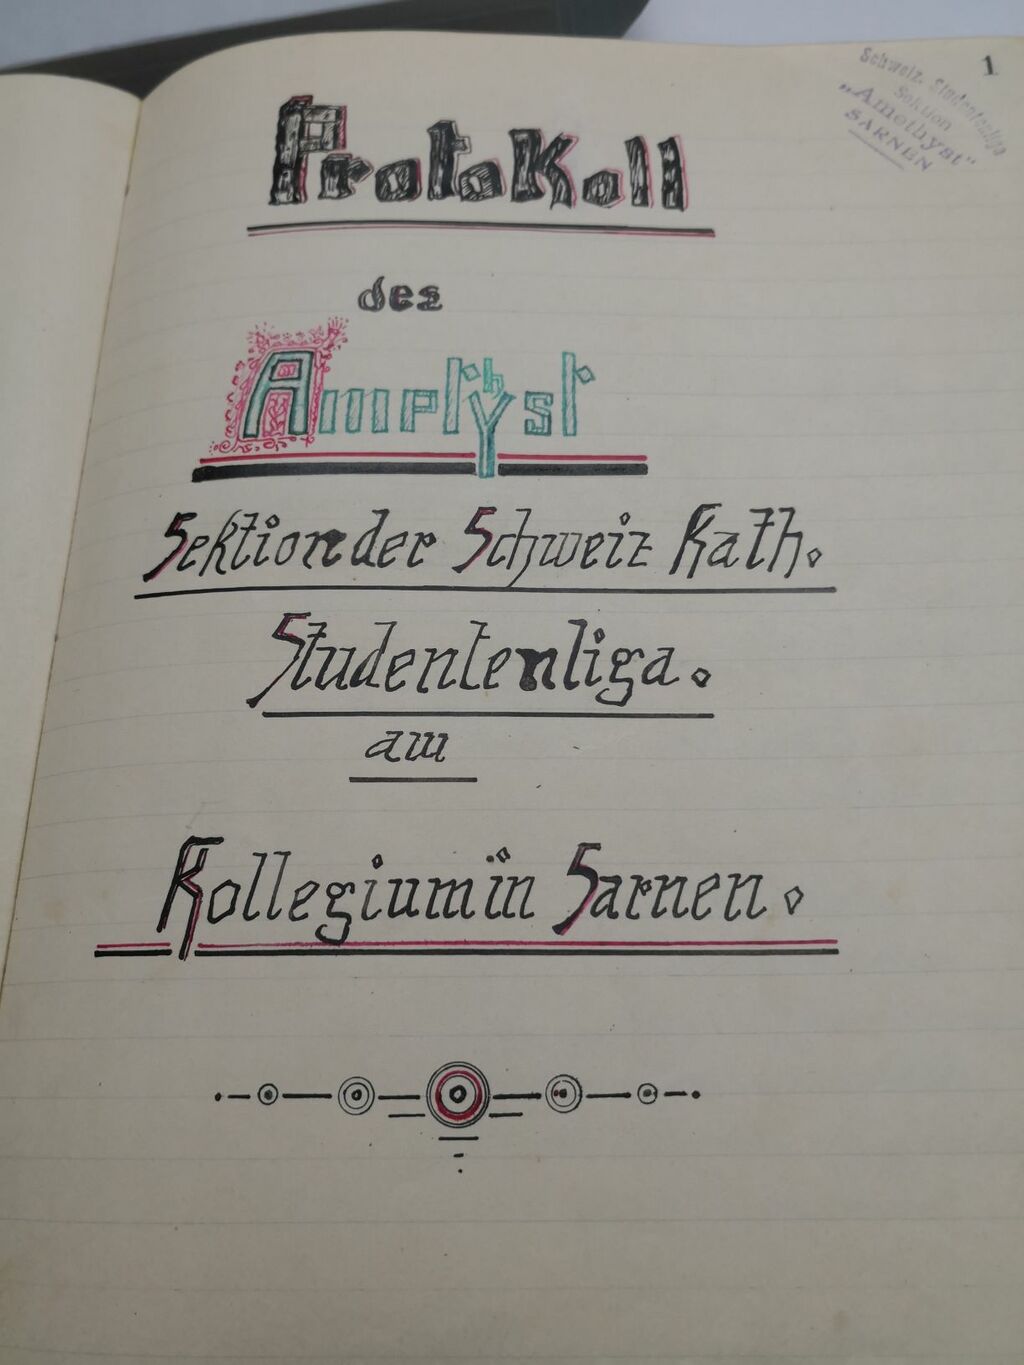 1
Schweiz. Studentenliga
Sektion
"Amethyst"
SARNEN
Protokoll
des
Ametÿhst
Sektion der Schweiz Kath.
Studentenliga.
am
Kollegium in Sarnen.